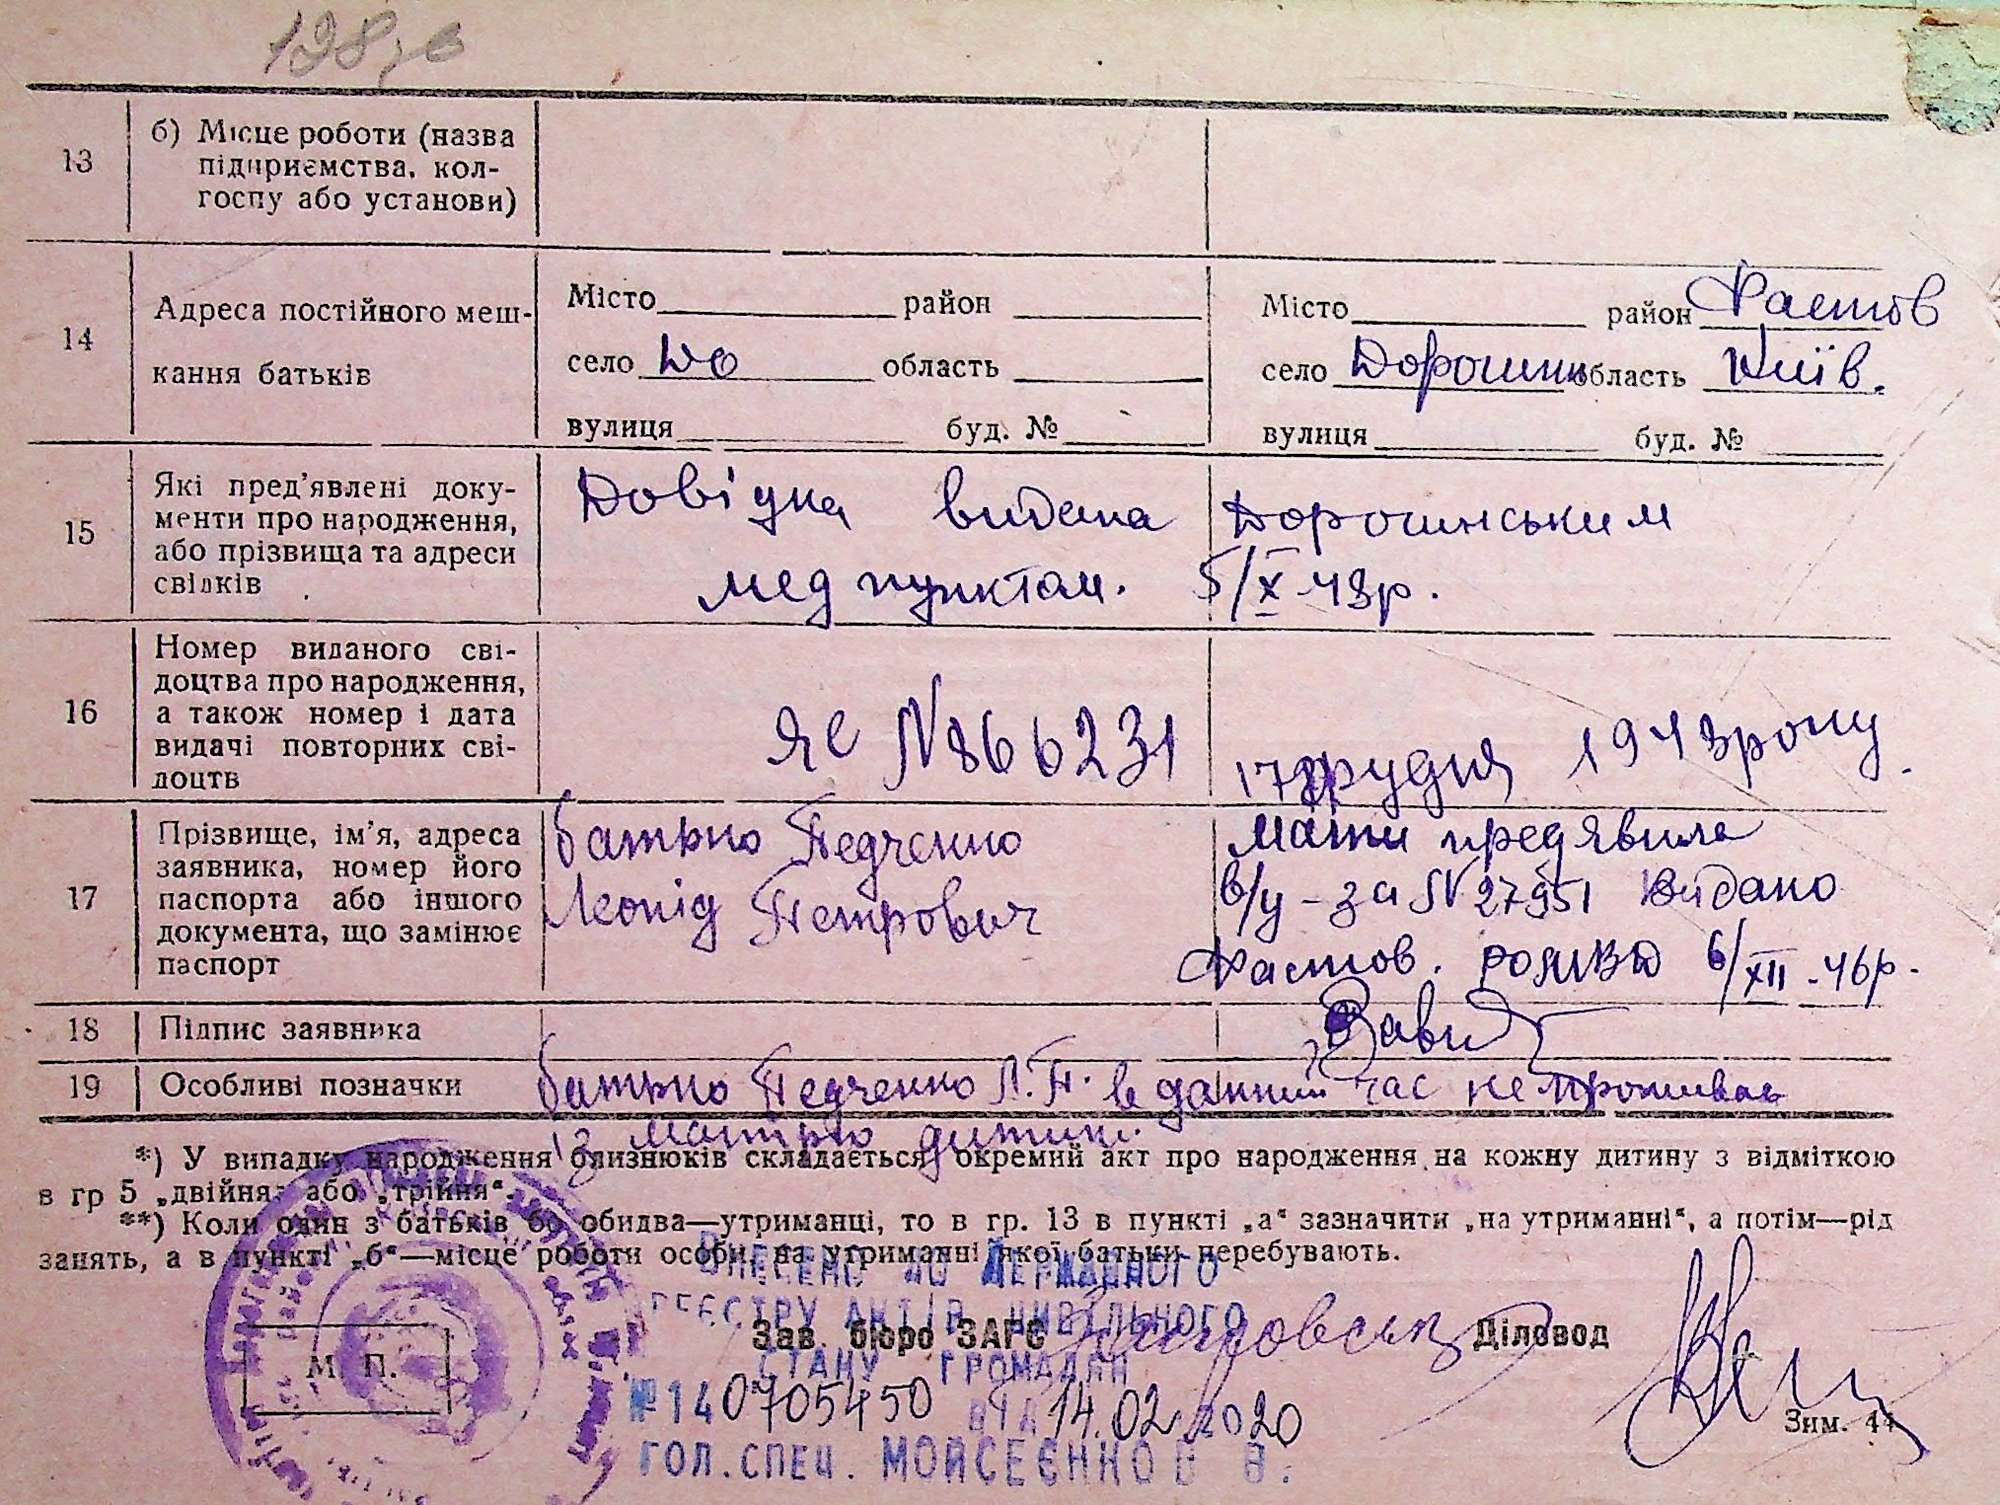 198, в
13
б) Місце роботи (назва
підприємства, кол-
госпу або установи)
14
Адреса постійного меш-
кання батьків
Місто район
село До область
вулиця буд. №
Місто район Фастов
село Дорошин область Київ.
вулиця буд. №
15
Які пред’явлені доку-
менти про народження,
або прізвища та адреси
свідків
Довідка видана Дорошинським
мед пунктам. 5/X 43р.
16
Номер виданого сві-
доцтва про народження,
а також номер і дата
видачі повторних сві-
доцтв
ЯС №866231
17 грудня 1943 року
17
Прізвище, ім’я, адреса
заявника, номер його
паспорта або іншого
документа, що замінює
паспорт
батько Педченко
Леонід Петрович
Мати предявила
№27951 Видано
Фастов. 6/XII-46р.
18
Підпис заявника
19
Особливі позначки
батько Педченко Л.П. в данний час не проживає
із матірю дитини.
*) У випадку народження близнюків складається окремий акт про народження на кожну дитину з відміткою
в гр 5 „двійня“ або „трійня“.
**) Коли один з батьків бо обидва—утриманці, то в гр. 13 в пункті „а“ зазначити „на утриманні“, а потім—рід
занять, а в пункті „б“—місце роботи особи, на утриманні якої батьки перебувають.
ВНЕСЕНО ДО ДЕРЖАВНОГО
РЕЄСТРУ АКТІВ ЦИВІЛЬНОГО
СТАНУ ГРОМАДЯН
Зав. бюро ЗАГС
Діловод
М. П.
№ 140705450 ВІД 14.02.2020
ГОЛ.СПЕЦ. МОЙСЕЄНКО В.
Зим. 44